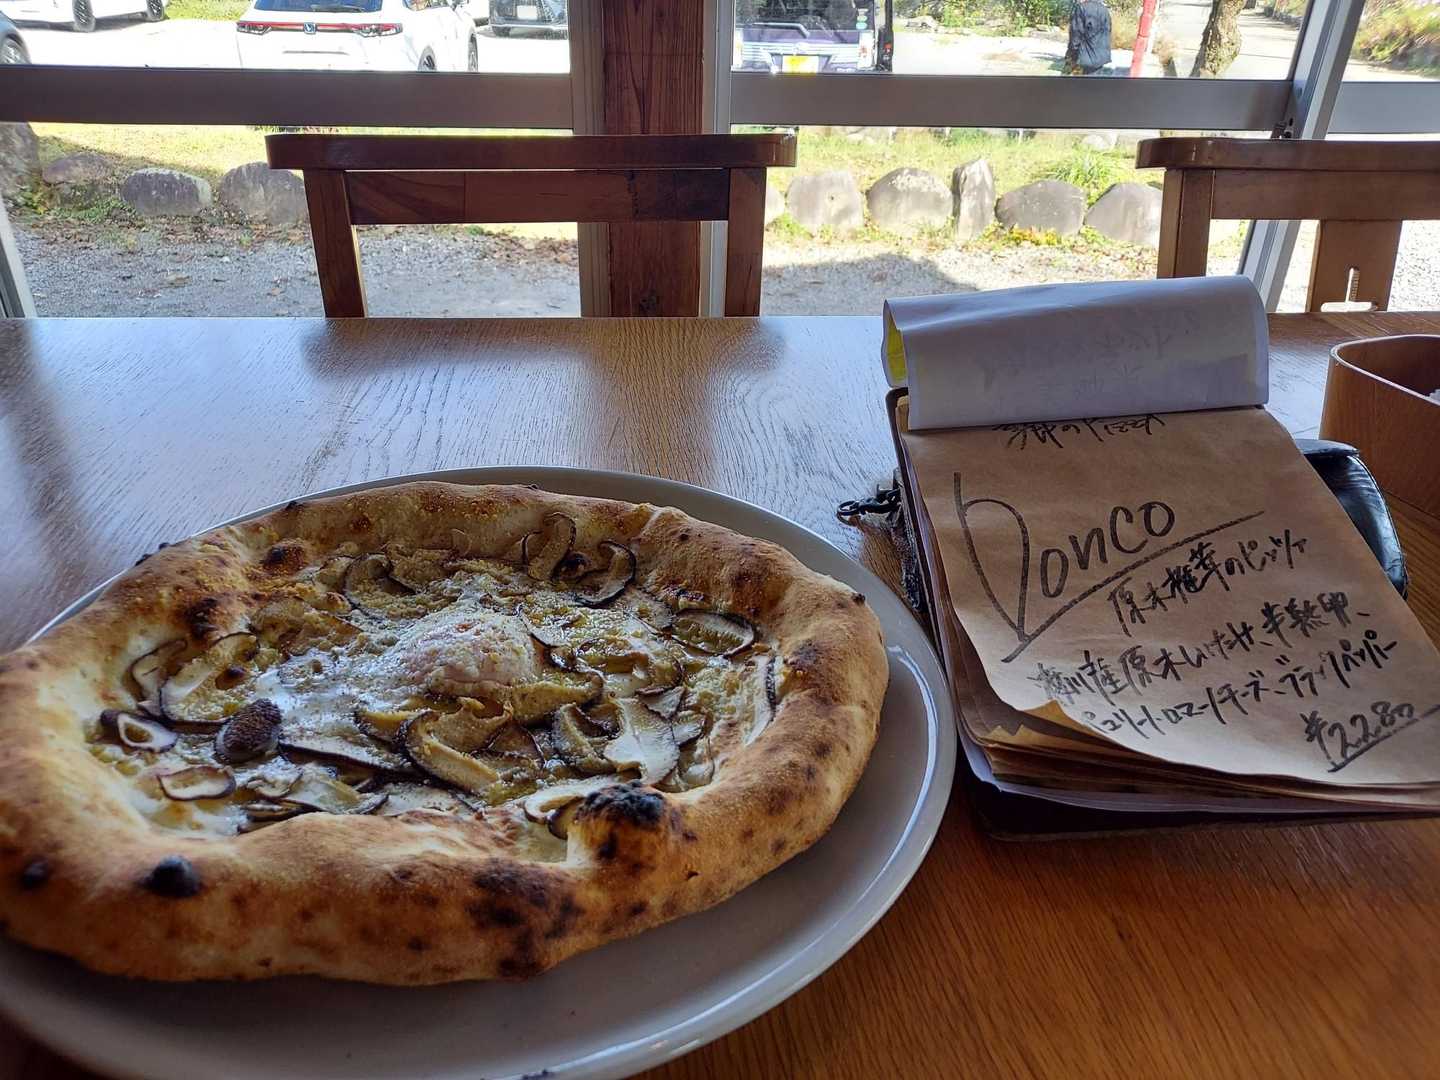 Donco
原木椎茸のピッツァ
原木しいたけ、半熟卵、
ペコリーノ・ロマーノチーズ、ブラックペッパー
¥2280